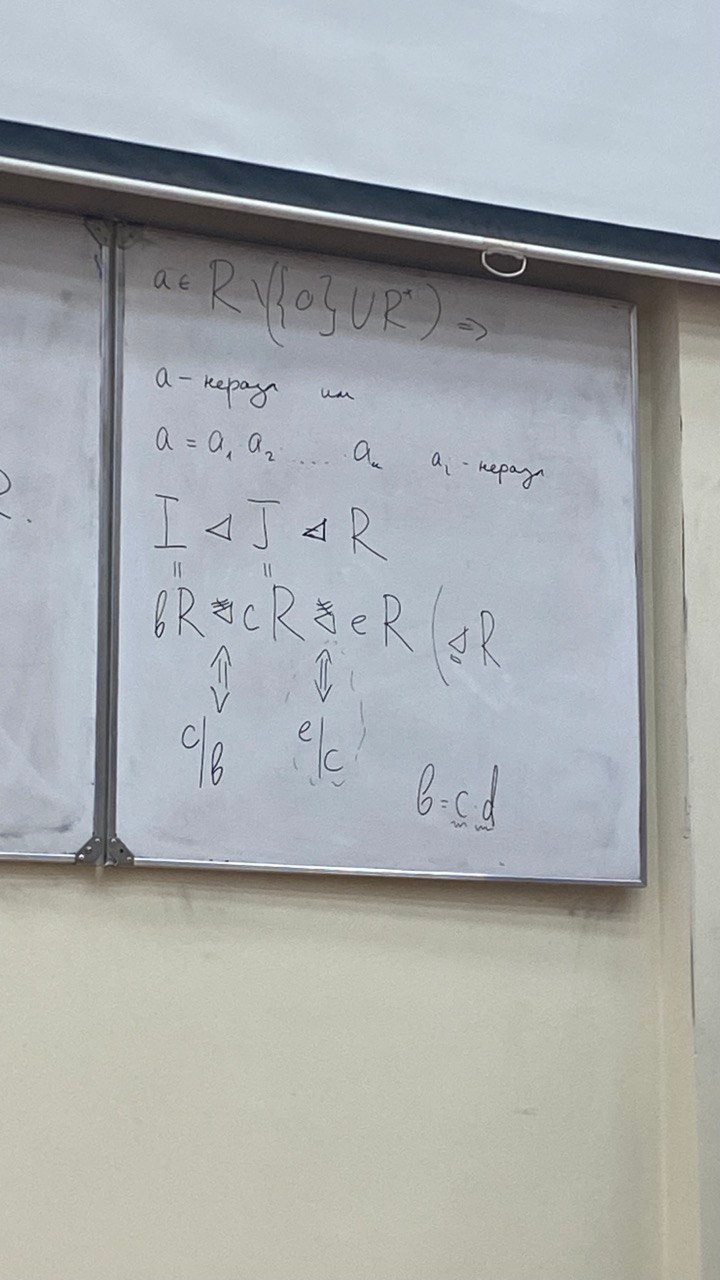 a ∈ R \ ({0} ∪ R*) ⇒
a - неразл или
a = a₁ a₂ .... aₙ aᵢ - неразл
I ⊲ J ⊲ R
R.
= =
bR ⊲ cR ⊲ eR ( ⊴ R
⇕ ⇕
c/b e/c
b = c · d